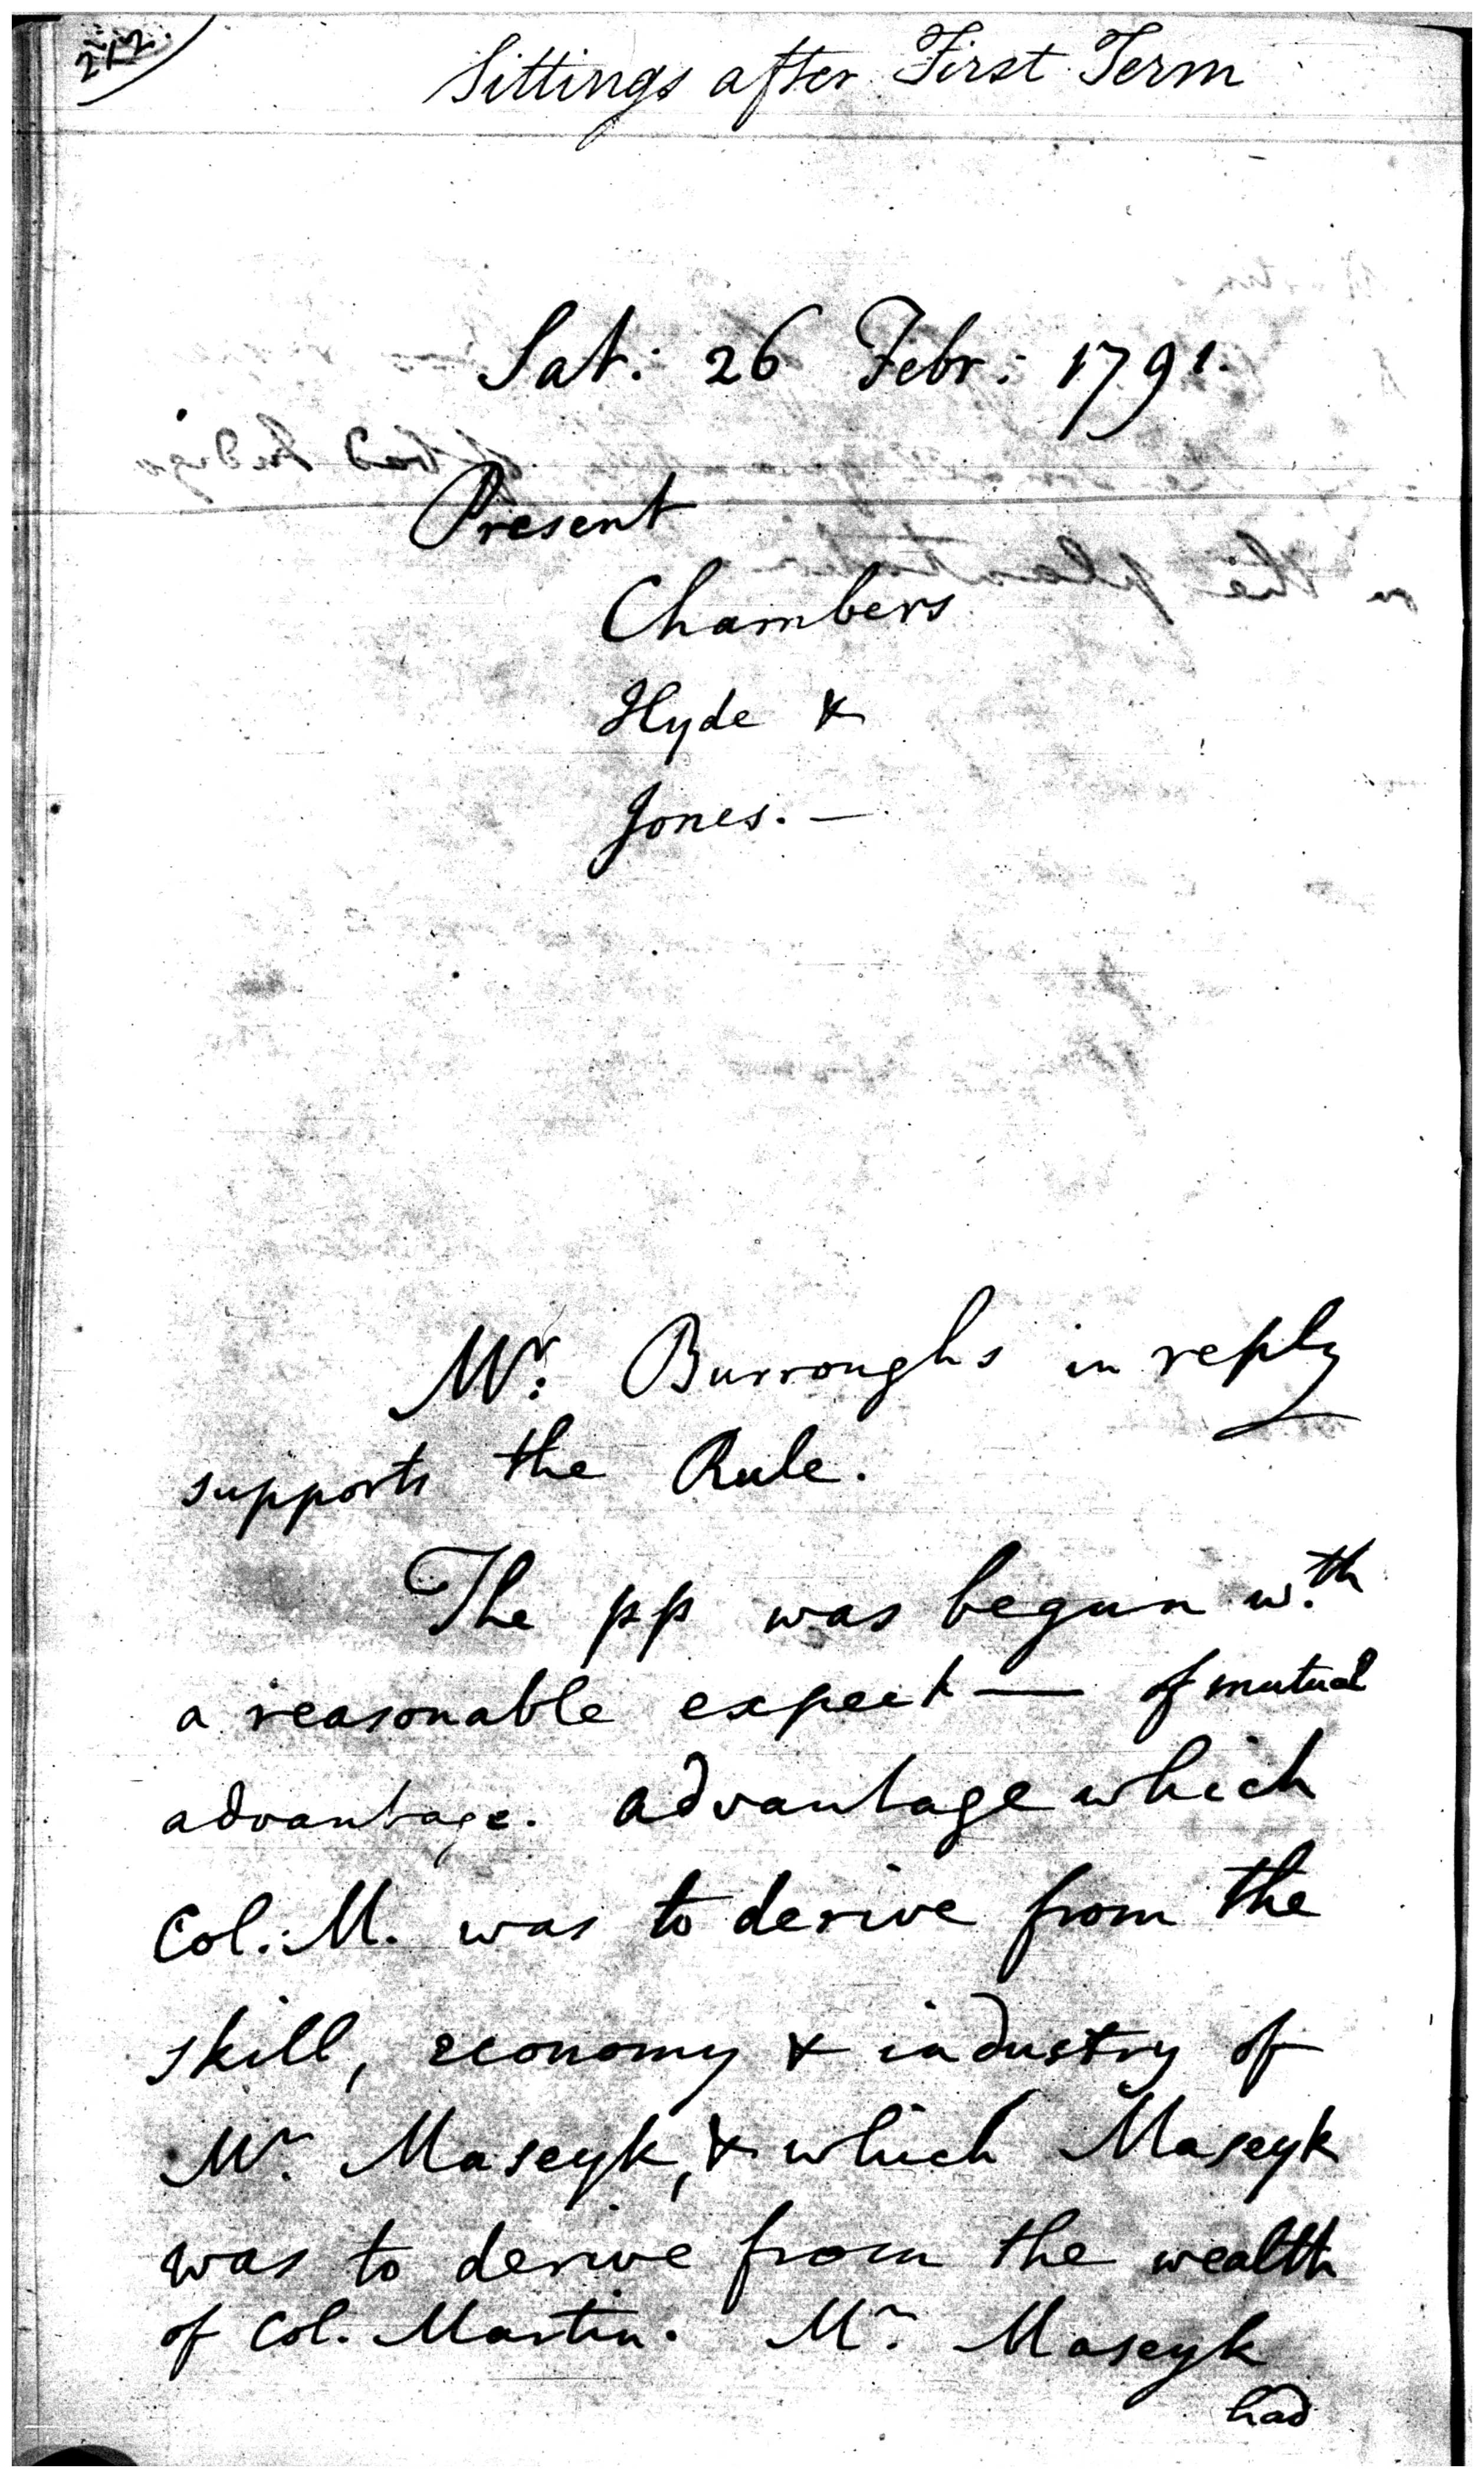 212.
Sittings after First Term
Sat: 26 Febr: 1791.
Present
Chambers
Hyde &
Jones. —
Mr. Burroughs in reply
supports the Rule.
The pp was begun w.th
a reasonable expect — of mutual
advantage. advantage which
Col. M. was to derive from the
skill, economy & industry of
Mr. Maseyk, & which Maseyk
was to derive from the wealth
of Col. Martin. Mr. Maseyk
had